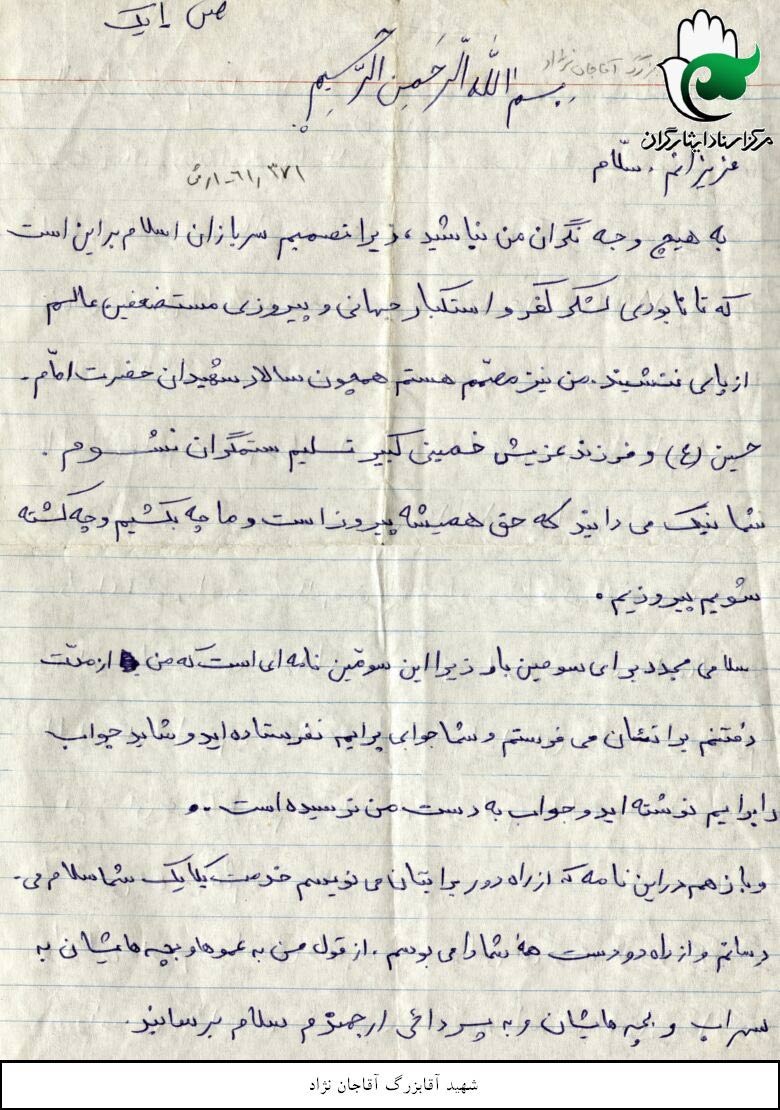 ص / یک
بزرگ آقاجان نژاد
بسم الله الرحمن الرحیم
مرکز اسناد ایثارگران
عزیزانم، سلام
به هیچ وجه نگران من نباشید، زیرا تصمیم سربازان اسلام بر این است
که تا نابودی لشکر کفر و استکبار جهانی و پیروزی مستضعفین عالم
از پای ننشیند. من نیز مصمّم هستم همچون سالار شهیدان حضرت امام
حسین (ع) و فرزند عزیزش خمینی کبیر تسلیم ستمگران نشوم.
شما نیک می دانید که حق همیشه پیروز است و ما چه بکشیم و چه کشته
شویم پیروزیم.
سلامی مجدد برای سومین بار زیرا این سومّین نامه ای است که من از مدّت
رفتنم براتتان می فرستم و شما جوابی برایم نفرستاده اید و شاید جواب
را برایم نوشته اید و جواب به دست من نرسیده است.
و باز هم در این نامه که از راه دور برایتان می نویسم خدمت یکایک شما سلام می
رسانم و از راه دور دست همهٔ شما را می بوسم. از قول من به عموها و بچه هایشان به
سهراب و بچه هایشان و به پسردائی ارجمندم سلام برسانید.
شهید آقابزرگ آقاجان نژاد